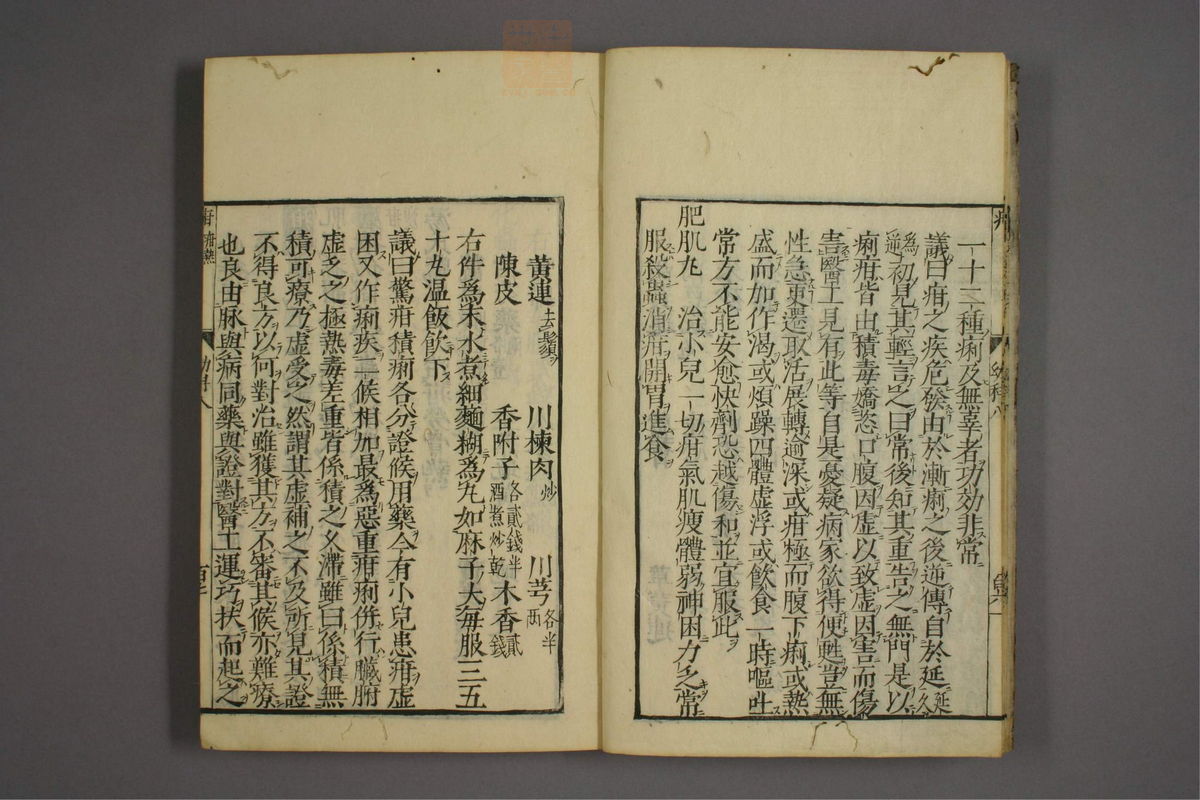 一十二種痢及無辜者功効非常
議曰疳之疾危殆由於漸痢之後遞傳自於延延久
為逆初見其輕言之曰常後知其重告之無門是以
痢疳皆由積毒嬌恣口腹因虛以致虛因害而傷
害醫工見有此等自是憂疑病家欲得便甦豈無
性急更遷取活展轉逾深或疳極而腹下痢或熱
盛而加作渴或煩躁四體虛浮或飲食一時嘔吐
常方不能安愈快劑恐越傷和並宜服此
肥肌丸 治小兒一切疳氣肌瘦體弱神困力乏常
服殺蟲消疳開胃進食
黃連去鬚 川楝肉炒 川芎各半兩
陳皮 香附子各貳錢半酒煮炒乾 木香貳錢
右件為末水煮細麵糊為丸如麻子大每服三五
十丸溫飯飲下
議曰驚疳積痢各分證候用藥今有小兒患疳虛
困又作痢疾二候相加最為惡重疳痢併行臟腑
虛乏之極熱毒差重皆係積之久滯雖曰係積無
積可療乃虛受之然謂其虛補之不及所見其證
不得良方以何對治雖獲其方不審其候亦難療
也良由脉與病同藥與證對醫工運巧扶而起之